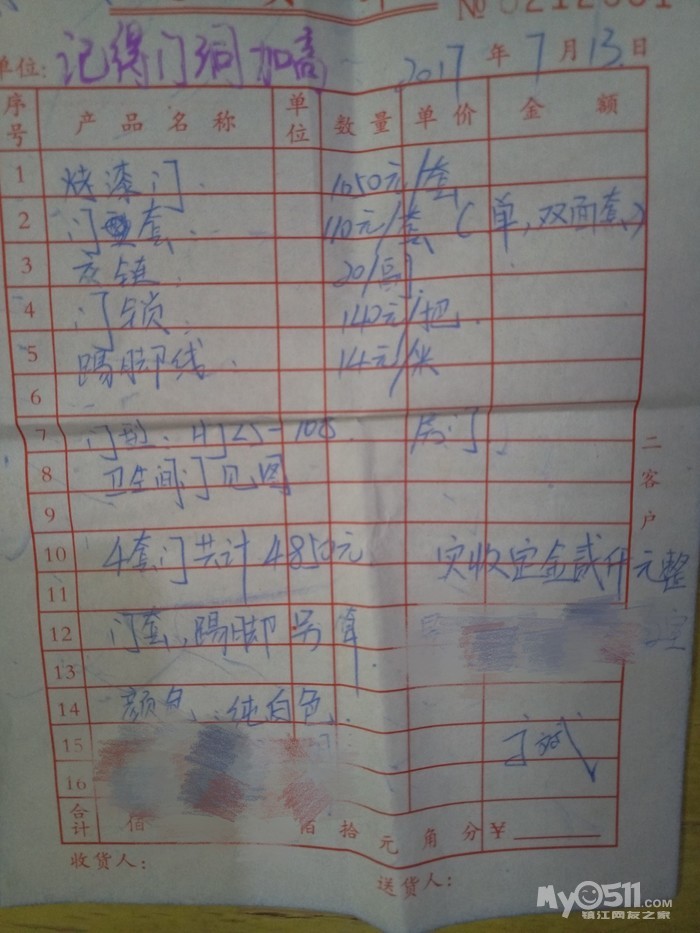 № 0212001
单位: 记得门洞加高 2017年7月13日
序号 产品名称 单位 数量 单价 金额
1 烤漆门. 1050元/套
2 门套 110元/套(单,双面套)
3 20/副
4 门锁. 140元/把.
5 踢脚线. 14元/米
6
7 门型: 房门
8 卫生间门见图
9
10 4套门共计4850元 实收定金贰仟元整
11
12 门套、踢脚另算.
13
14 颜色:纯白色.
15
16
合计 佰 拾 元 角 分 ¥
收货人:
送货人:
二客户
My0511.com
镇江网友之家